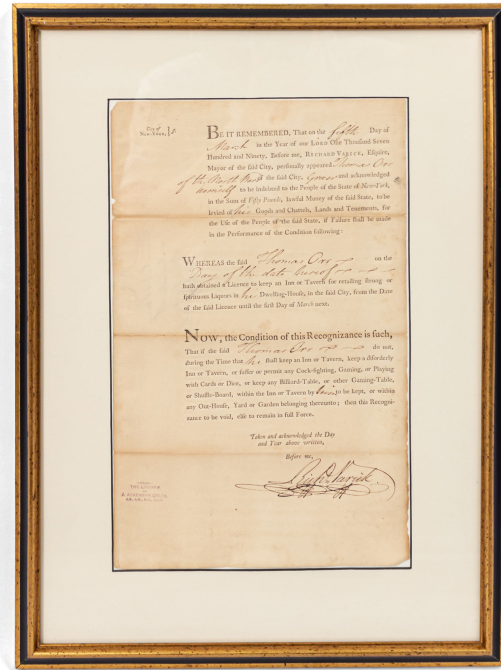 City of
New-York, ss
BE IT REMEMBERED, That on the fifth Day of
March in the Year of our LORD One Thousand Seven
Hundred and Ninety, Before me, RICHARD VARICK, Esquire,
Mayor of the said City, personally appeared Thomas Orr
of the North Ward of the said City, Grocer and acknowledged
himself to be indebted to the People of the State of New-York,
in the Sum of Fifty Pounds, lawful Money of the said State, to be
levied of his Goods and Chattels, Lands and Tenements, for
the Use of the People of the said State, if Failure shall be made
in the Performance of the Condition following:
WHEREAS the said Thomas Orr on the
Day of the date hereof
hath obtained a Licence to keep an Inn or Tavern for retailing strong or
spirituous Liquors in his Dwelling-House, in the said City, from the Date
of the said Licence until the first Day of March next.
NOW, the Condition of this Recognizance is such,
That if the said Thomas Orr do not,
during the Time that he shall keep an Inn or Tavern, keep a disorderly
Inn or Tavern, or suffer or permit any Cock-fighting, Gaming, or Playing
with Cards or Dice, or keep any Billiard-Table, or other Gaming-Table,
or Shuffle-Board, within the Inn or Tavern by him to be kept, or within
any Out-House, Yard or Garden belonging thereunto; then this Recogni-
zance to be void, else to remain in full Force.
Taken and acknowledged the Day
and Year above written,
Before me,
Richd Varick